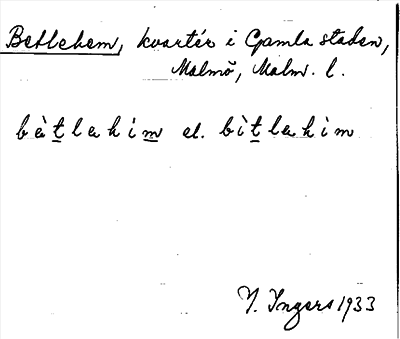 Betlehem, kvarter i Gamla staden,
Malmö, Malm. l.
bètlehim el. bìtlehim
I. Ingers 1933